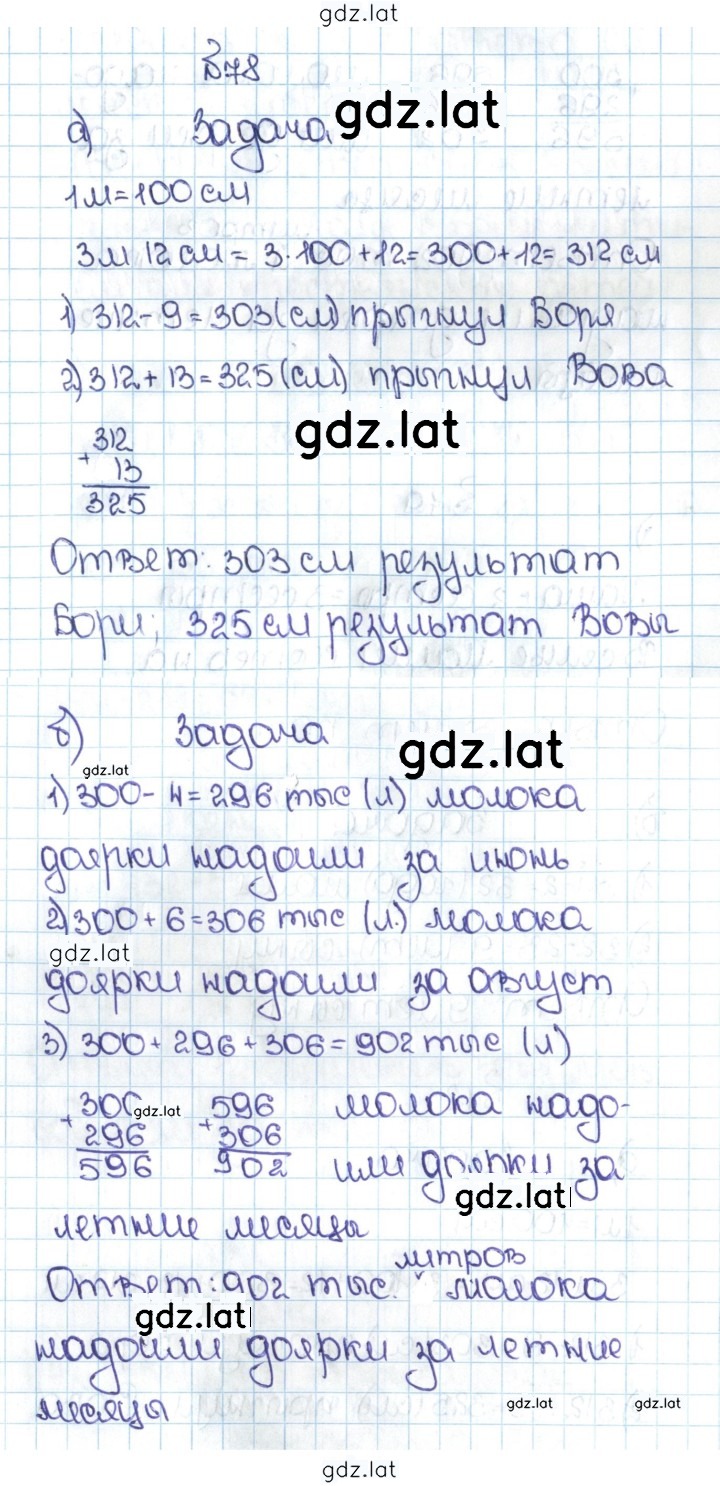 gdz.lat
№78
а) Задача. gdz.lat
1м=100 см
3м 12 см = 3·100+12=300+12= 312 см
1) 312-9=303(см) прыгнул Боря
2) 312+13=325(см) прыгнул Вова
312
+ 13
325
gdz.lat
Ответ: 303 см результат
Бори; 325 см результат Вовы
б) Задача gdz.lat
gdz.lat
1) 300-4=296 тыс (л) молока
доярки надоили за июнь
2) 300+6=306 тыс (л.) молока
gdz.lat
доярки надоили за август
3) 300+296+306=902 тыс (л)
300 gdz.lat 596 молока надо-
+ 296 + 306
596 902 или доярки за
gdz.lat
летние месяцы
литров
Ответ: 902 тыс. ˅ молока
gdz.lat
надоили доярки за летние
месяцы
gdz.lat gdz.lat
gdz.lat